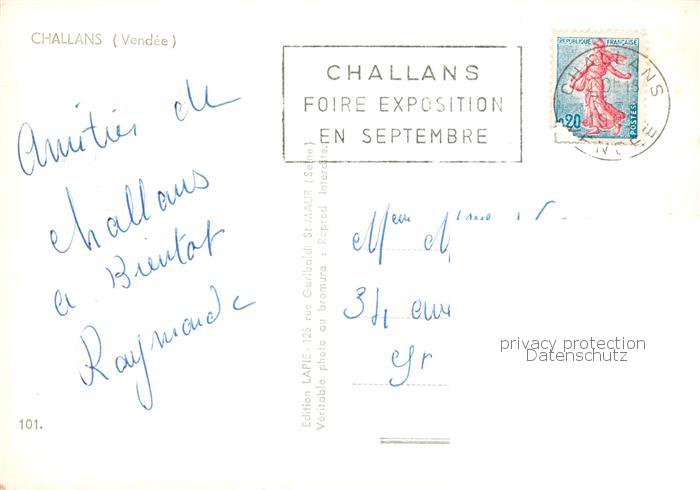 CHALLANS (Vendée)
CHALLANS
FOIRE EXPOSITION
EN SEPTEMBRE
REPUBLIQUE FRANÇAISE
0,20
POSTES
CHALLANS
Amitiés de
challans
a Bientot
Raymonde
Edition LAPIE - 125 rue Garibaldi St-MAUR (Seine)
Véritable photo au bromure : Reprod. Interdite.
34
privacy protection
Datenschutz
101.